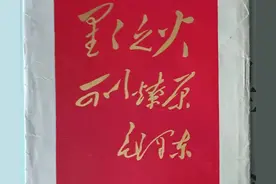 星々之火
可以燎原
毛泽东